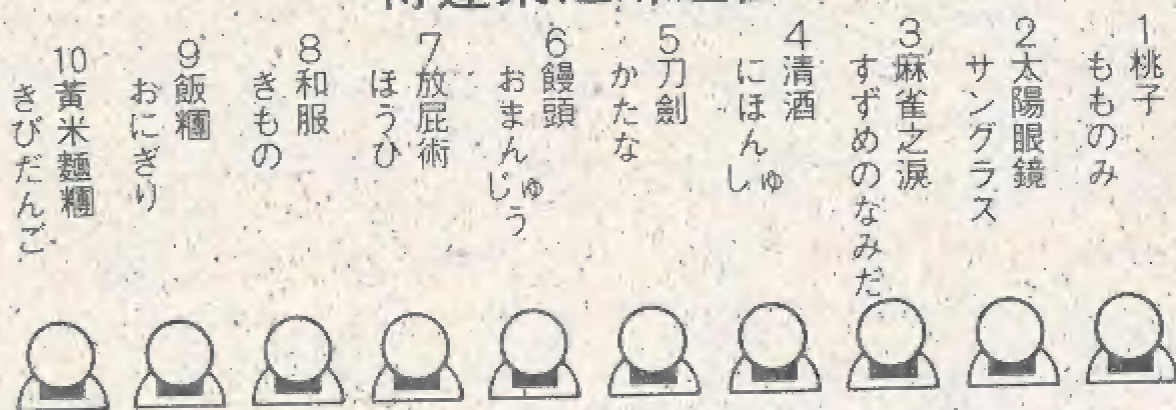 1 桃子
もものみ
2 太陽眼鏡
サングラス
3 麻雀之淚
すずめのなみだ
4 清酒
にほんしゅ
5 刀劍
かたな
6 饅頭
おまんじゅう
7 放屁術
ほうひ
8 和服
きもの
9 飯糰
おにぎり
10 黃米麵糰
きびだんご